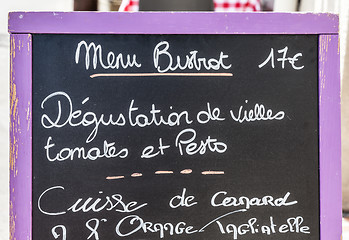 Menu Bistrot 17€
Dégustation de vielles
tomates et Pesto
Cuisse de Canard
à l' Orange Tagliatelle